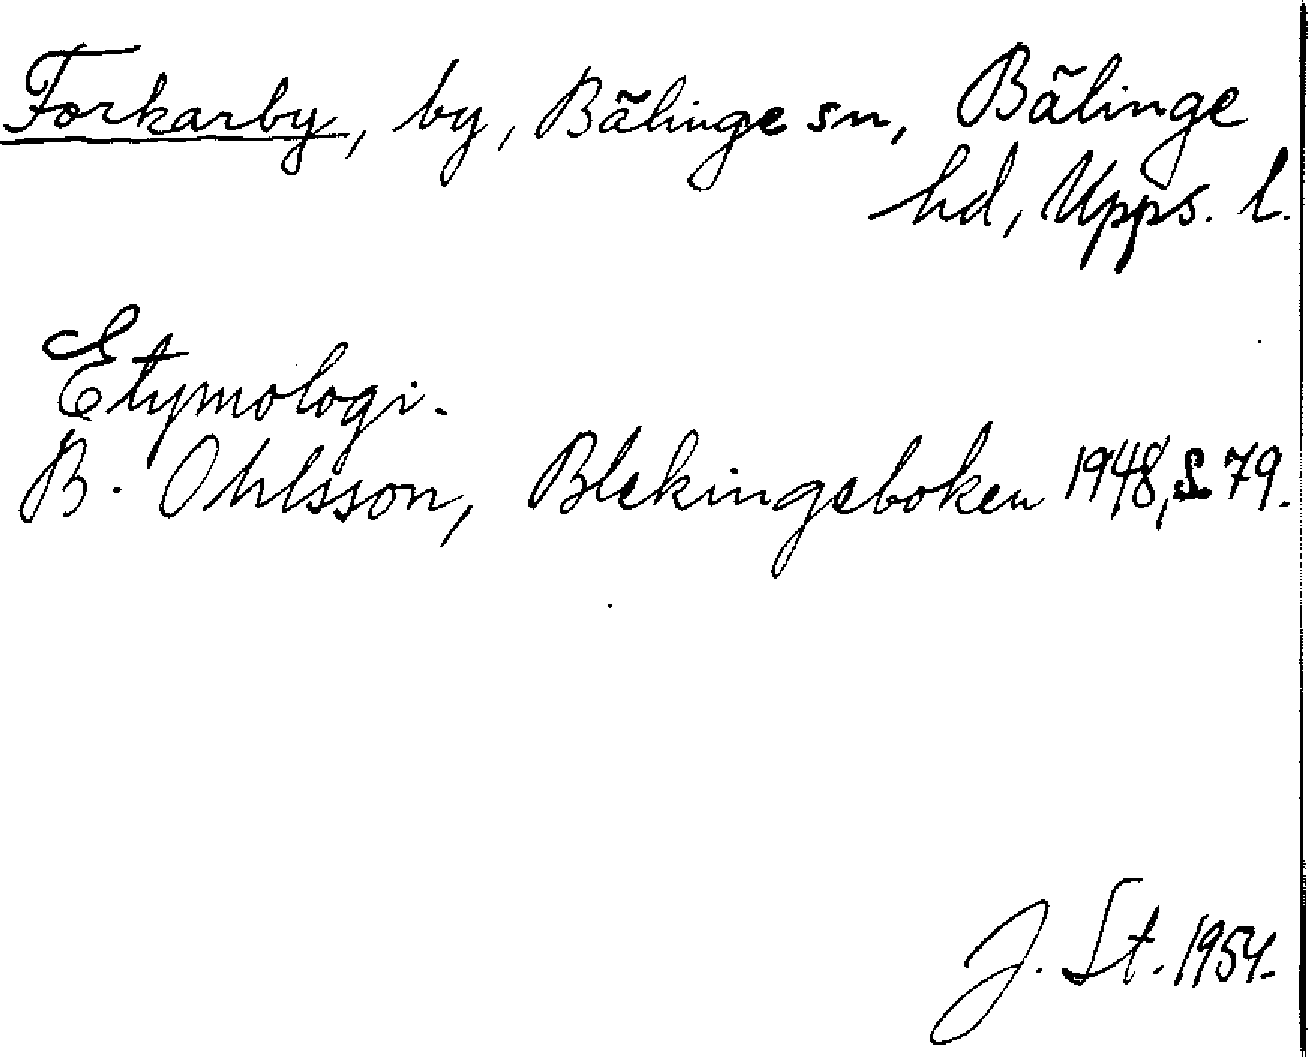 Forkarby, by, Bälinge sn, Bälinge
hd, Upps. l.
Etymologi.
B. Ohlsson, Blekingeboken 1948, s. 79.
J. St. 1954.